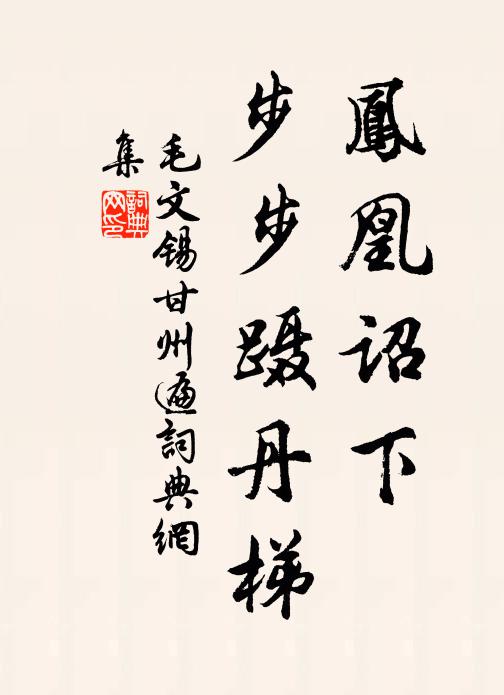 鳳凰詔下
步步蹑丹梯
毛文锡甘州遍詞典網
集
詞典網印